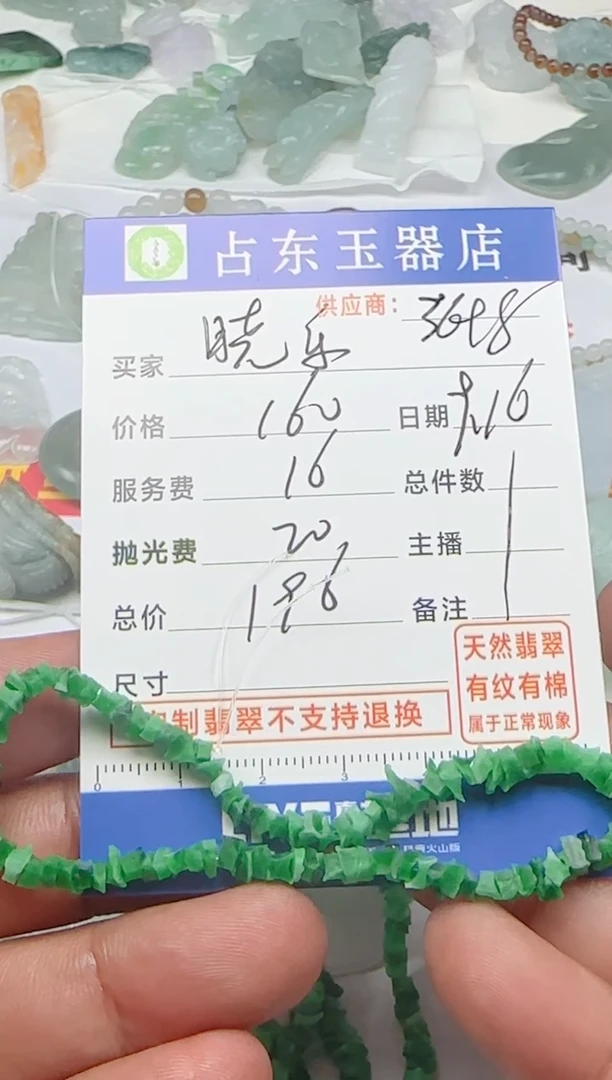 占东玉器店
供应商: 3648
买家 晓乐
价格 160 日期 9.16
服务费 16 总件数 1
抛光费 20 主播
总价 196 备注
尺寸
天然翡翠
有纹有棉
属于正常现象
制翡翠不支持退换
0 1 2 3
火山版